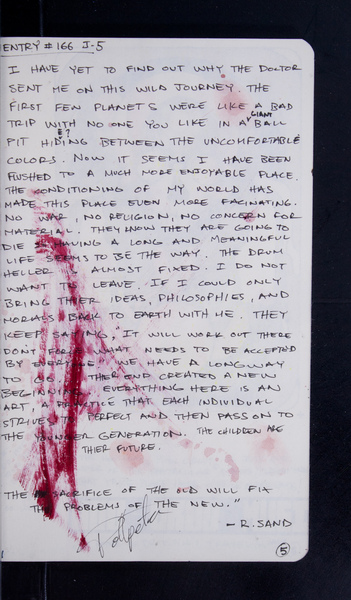 ENTRY # 166 J-5
I HAVE YET TO FIND OUT WHY THE DOCTOR
SENT ME ON THIS WILD JOURNEY. THE
FIRST FEW PLANETS WERE LIKE A BAD
TRIP WITH NO ONE YOU LIKE IN A GIANT BALL
PIT HIDING BETWEEN THE UNCOMFORTABLE
COLORS. NOW IT SEEMS I HAVE BEEN
PUSHED TO A MUCH MORE ENJOYABLE PLACE.
THE CONDITIONING OF MY WORLD HAS
MADE THIS PLACE EVEN MORE FACINATING.
NO WAR, NO RELIGION, NO CONCERN FOR
MATERIAL. THEY NOW THEY ARE GOING TO
DIE HAVING A LONG AND MEANINGFUL
LIFE SEEMS TO BE THE WAY. THE DRUM
HELLER IS ALMOST FIXED. I DO NOT
WANT TO LEAVE. IF I COULD ONLY
BRING THIER IDEAS, PHILOSOPHIES, AND
MORALS BACK TO EARTH WITH ME. THEY
KEEP SAYING, "IT WILL WORK OUT THERE
DON'T FORCE WHAT NEEDS TO BE ACCEPTED
BY EVERYONE. WE HAVE A LONG WAY
TO GO. THE END CREATES A NEW
BEGINNING. EVERYTHING HERE IS AN
ART A PRACTICE THAT EACH INDIVIDUAL
STRIVES TO PERFECT AND THEN PASS ON TO
THE YOUNGER GENERATION. THE CHILDREN ARE
THIER FUTURE.
THE SACRIFICE OF THE OLD WILL FIX
THE PROBLEMS OF THE NEW."
- R. SAND
5